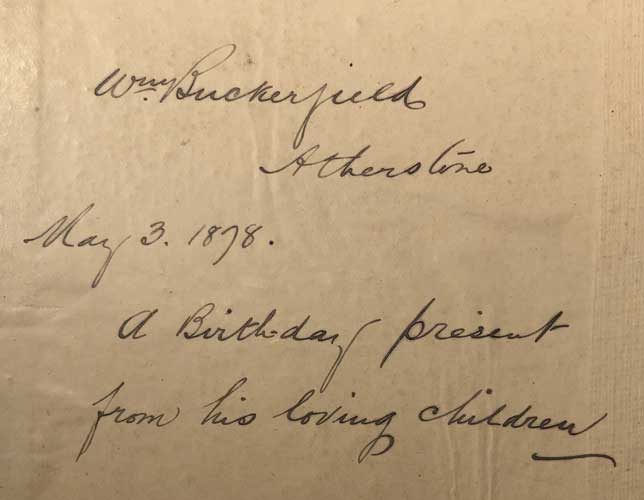 Wm. Buckerfield
Atherstone
May 3. 1878.
A Birth-day present
from his loving children